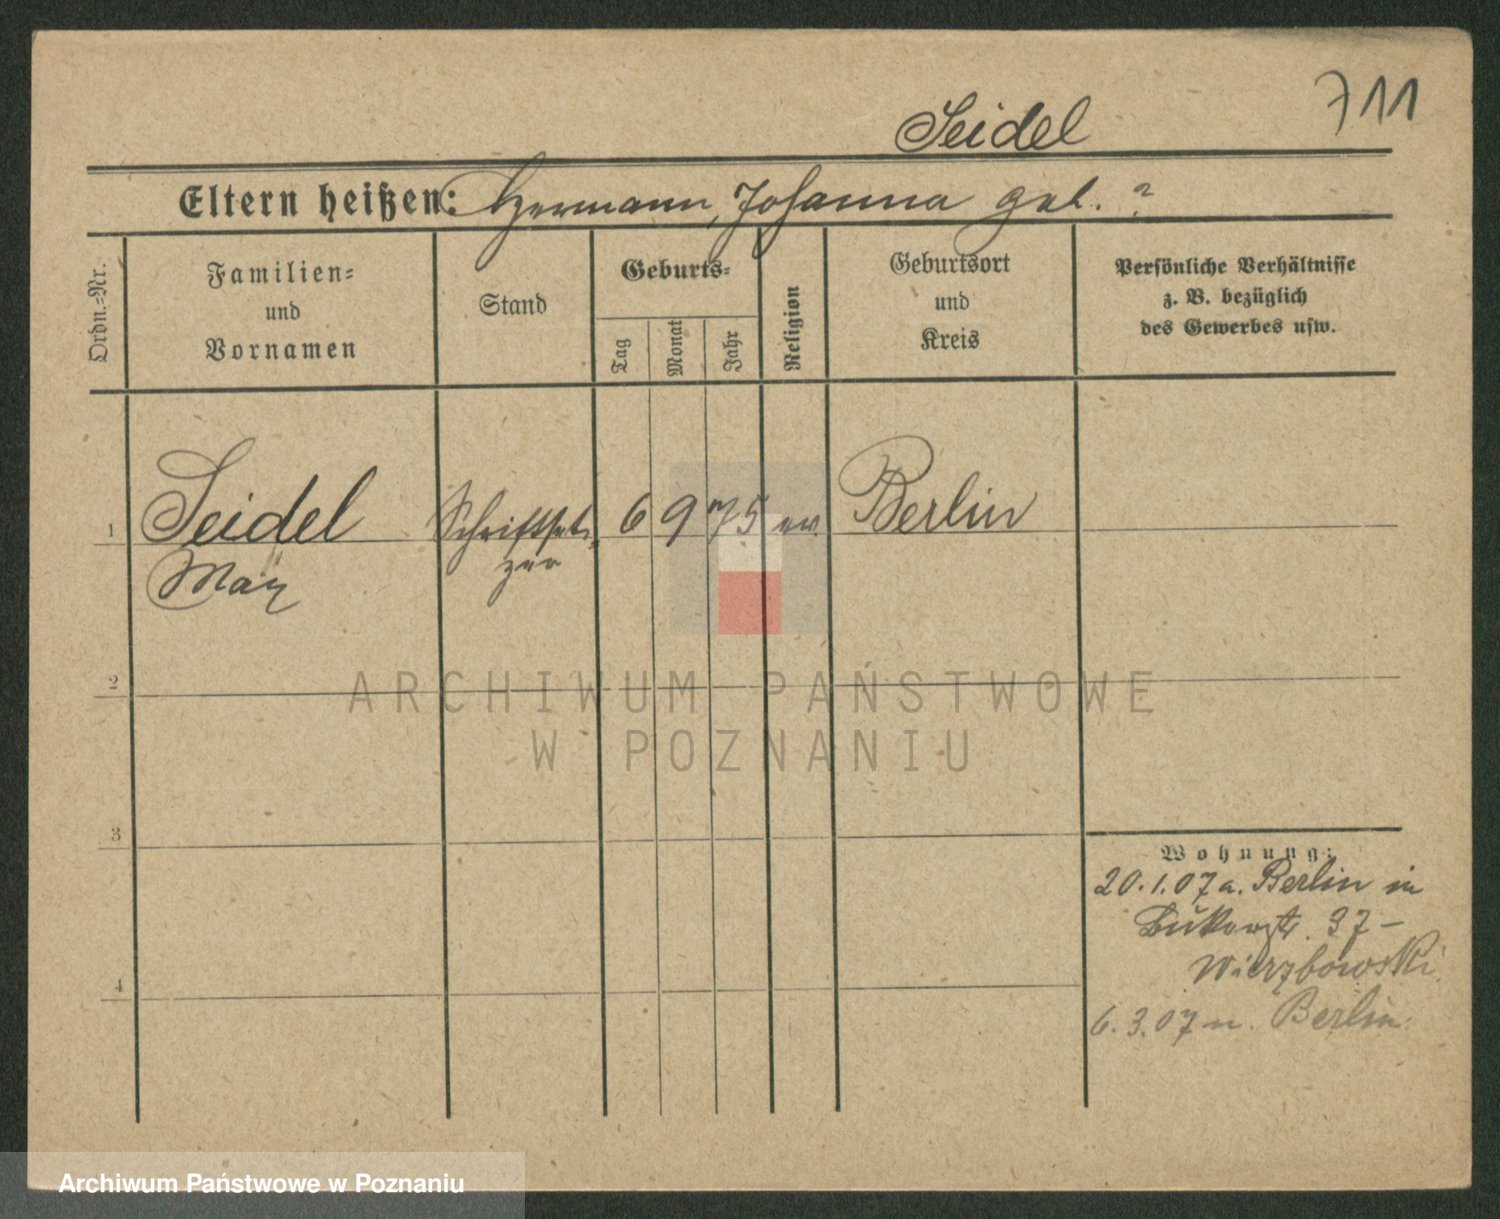 711
Seidel
Eltern heißen: Hermann, Johanna geb. ?
Ordn.-Nr.
Familien-
und
Vornamen
Stand
Geburts-
Tag
Monat
Jahr
Religion
Geburtsort
und
Kreis
Persönliche Verhältnisse
z. B. bezüglich
des Gewerbes usw.
1
Seidel
Max
Schriftset-
zer
6
9
75
ev.
Berlin
2
3
4
Wohnung:
20.1.07 a. Berlin in
37 –
Wierzbowski
6.3.07 n. Berlin.
ARCHIWUM PAŃSTWOWE
W POZNANIU
Archiwum Państwowe w Poznaniu